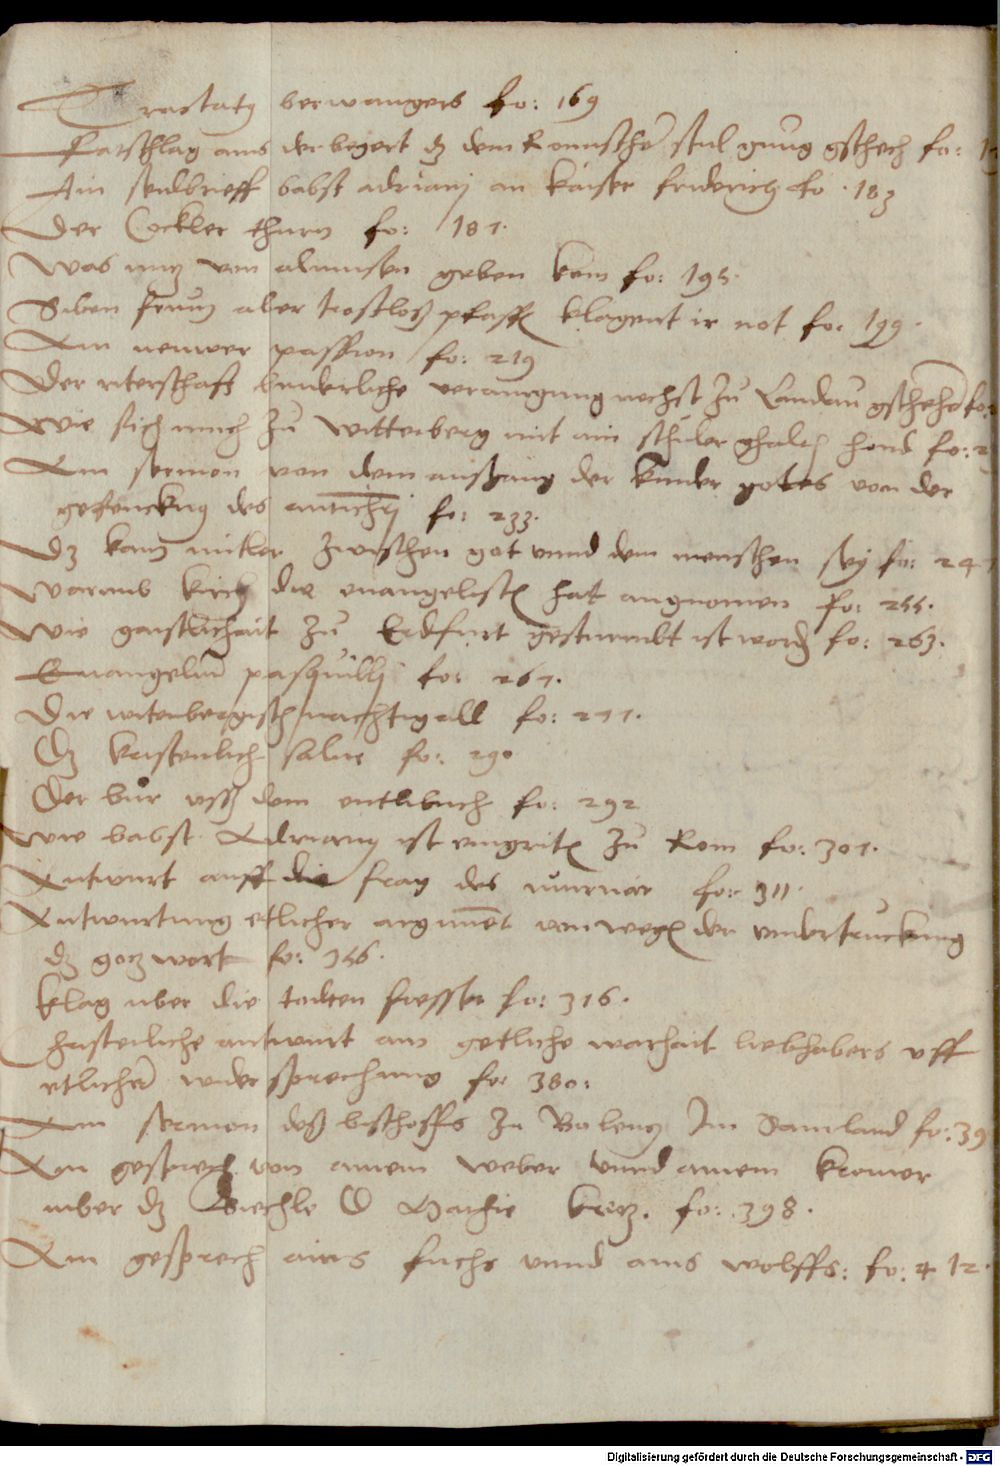 Tractatus berwangers fo: 169
Ratschlag ains der begert dz dem Romischē stul gnug gschech fo:
Ain sendbrieff babst adriani an kaiser friderich fo. 183
Der Cockler thurn fo: 187.
Was man von almusen geben fo: 195.
Siben frum aber trostloß pfaffen klagent ir not fo: 199.
Ain neuwer passion fo: 219
Der riterschafft bruderliche verainigung nechst zu Landau gschehē fo:
Wie sich zu Wittenberg mit ain fo:
Ain sermon von dem außzug der kinder gotes von der
gefencknus des antichri fo: 233.
Dz kain mitler zwischen got unnd dem menschen sey fo: 247
Warumb kirch die evangelisten hat angnomen fo: 255.
Wie gaistlichait zu Erdfurt gesturmbt ist worden fo: 263.
Evangeliū pasquilli fo: 267.
Die witenbergisch nachtigall fo: 277.
Dz kristenlich salve fo: 290
Der bur uss dem entlibuch fo: 292
Wie babst Adrianus ist eingriten zu Rom fo: 301.
Antwurt auff die frag des murnar fo: 311.
Antwurtung etlicher argumēt von wegen der undertruckung
dz gotz wort fo: 366.
Klag uber die todten fresser fo: 316.
christenliche antwurt ain getliche warhait liebhabers uff
etlichē widersprechung fo: 380:
Ain sermon deß bischoffs zu im Samland fo: 39
Ain gesprech von ainem weber unnd ainem kromer
uber dz Biechle D Mathie kretz. fo: 398.
Ain gesprech ains fuchs unnd ains wolffs: fo: 412.
Digitalisierung gefördert durch die Deutsche Forschungsgemeinschaft - DFG